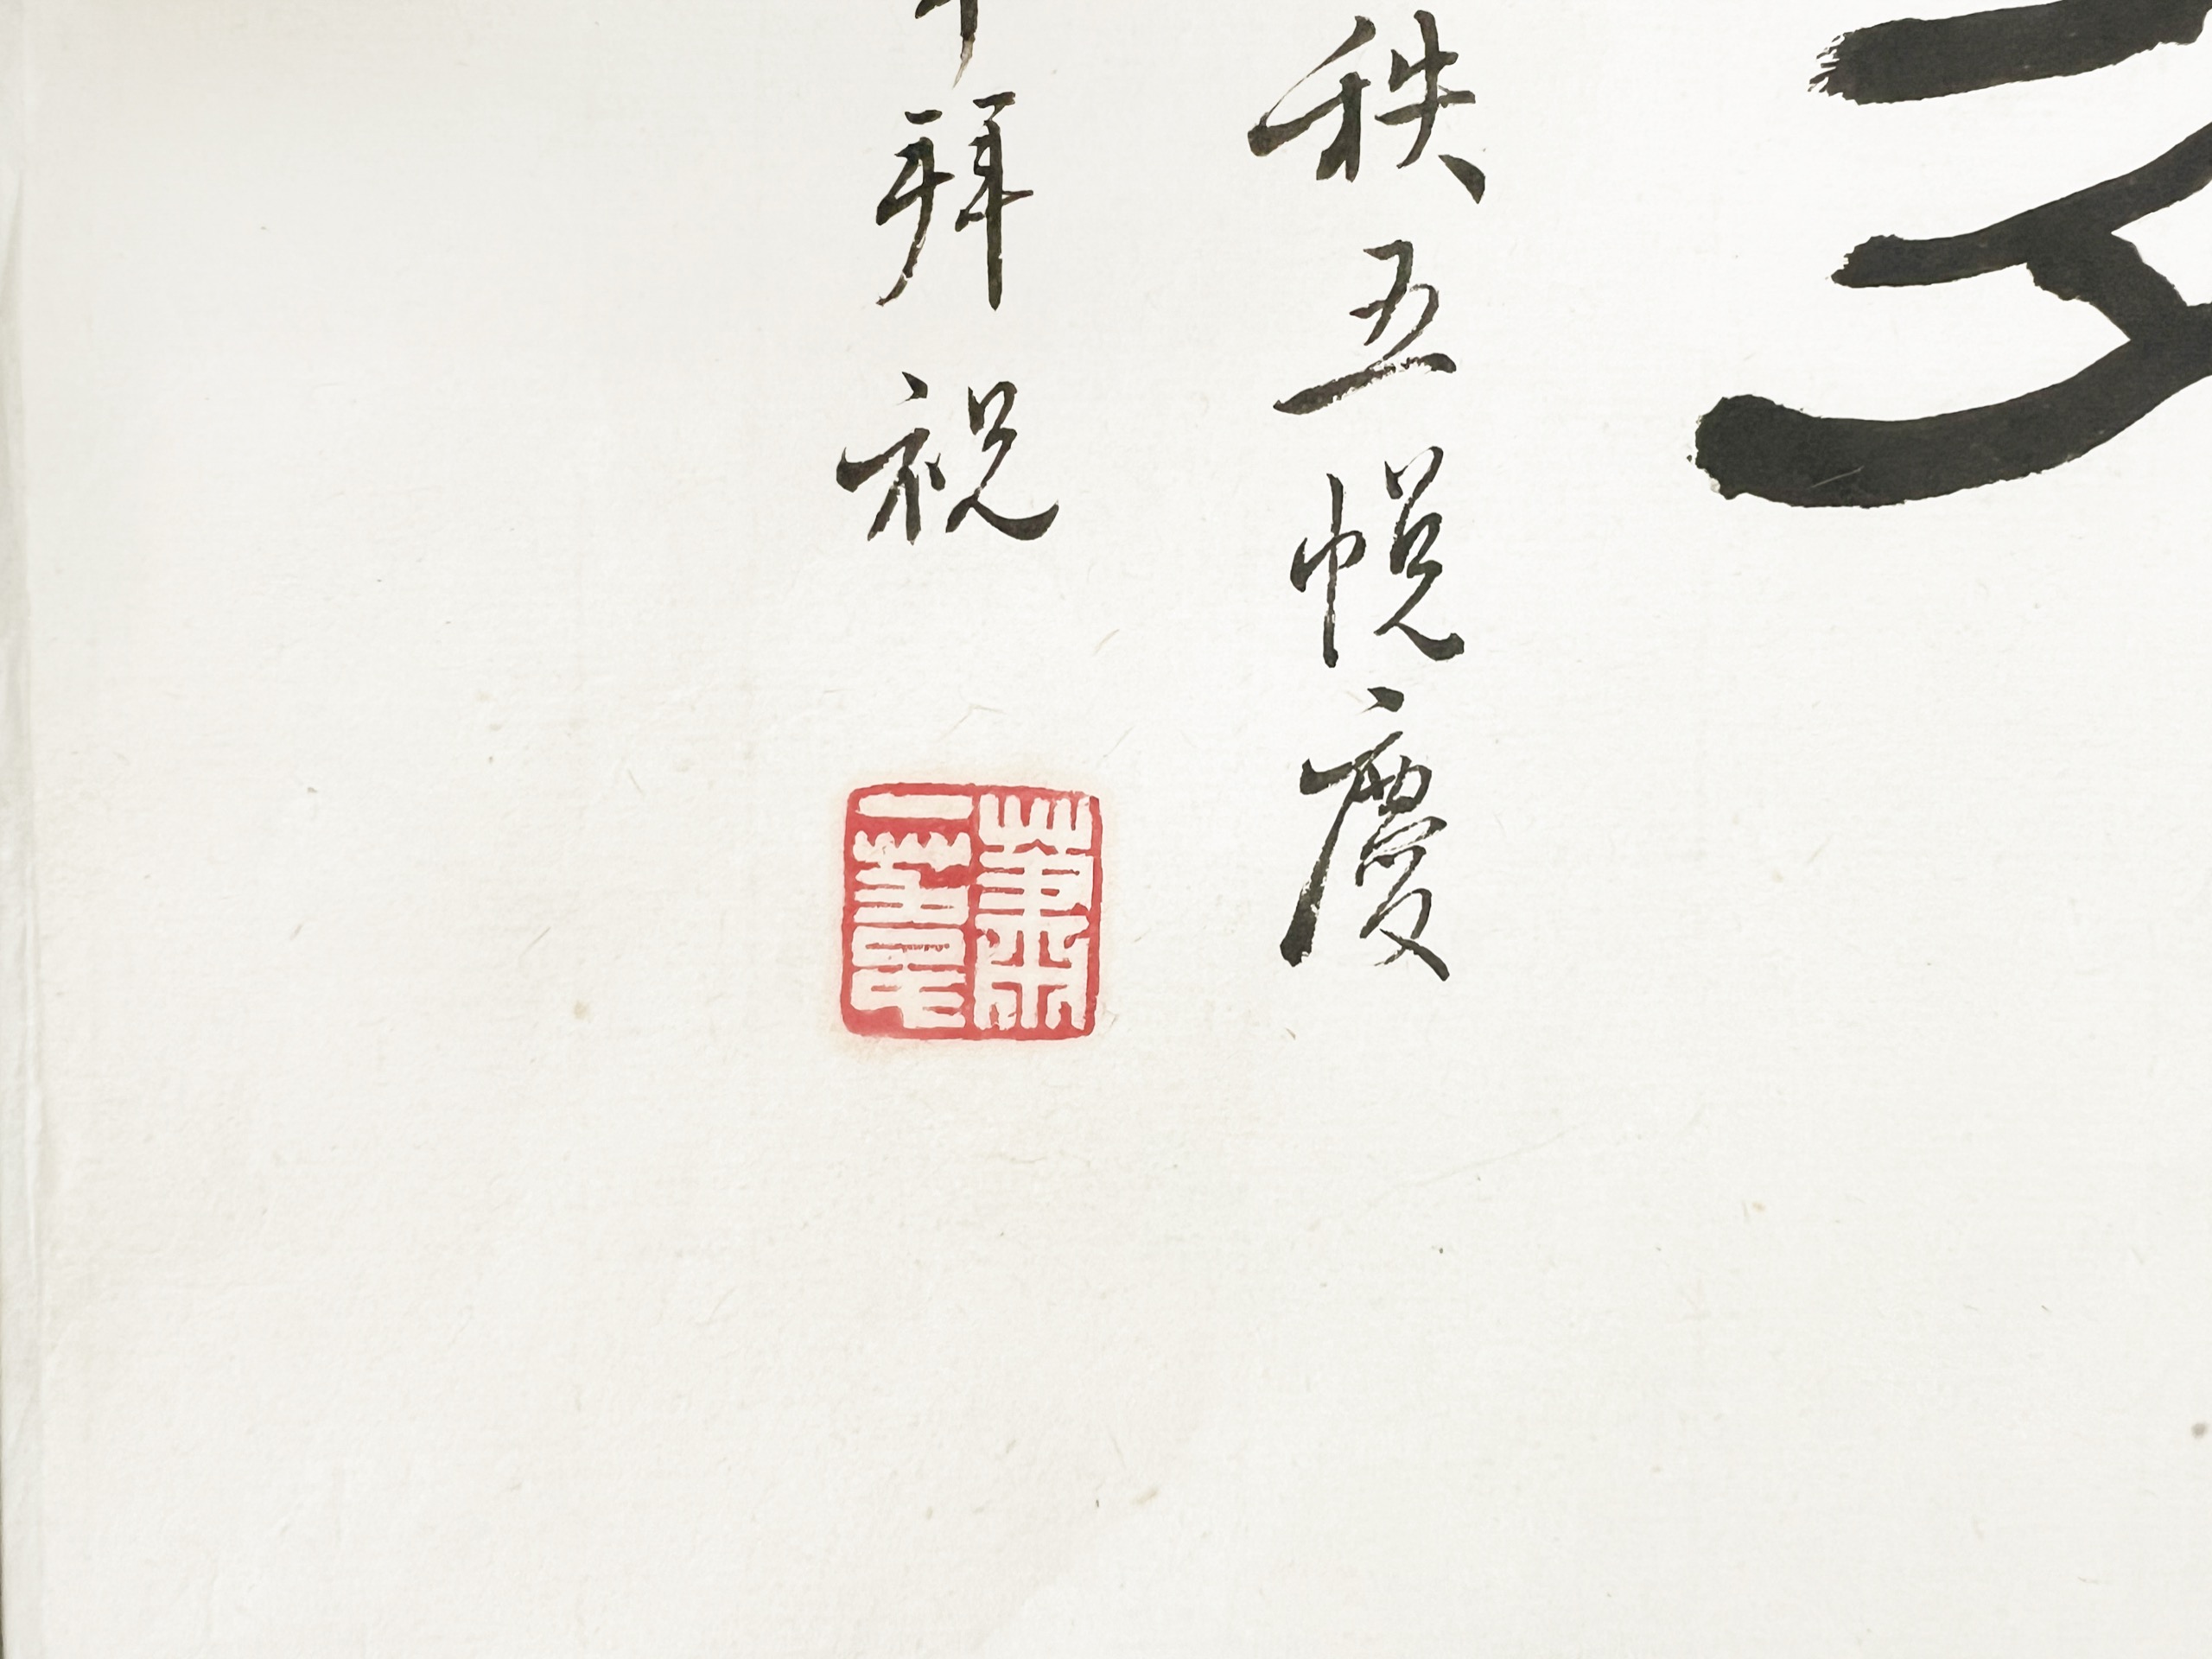 秩五帨慶
拜祝
蕭一葦